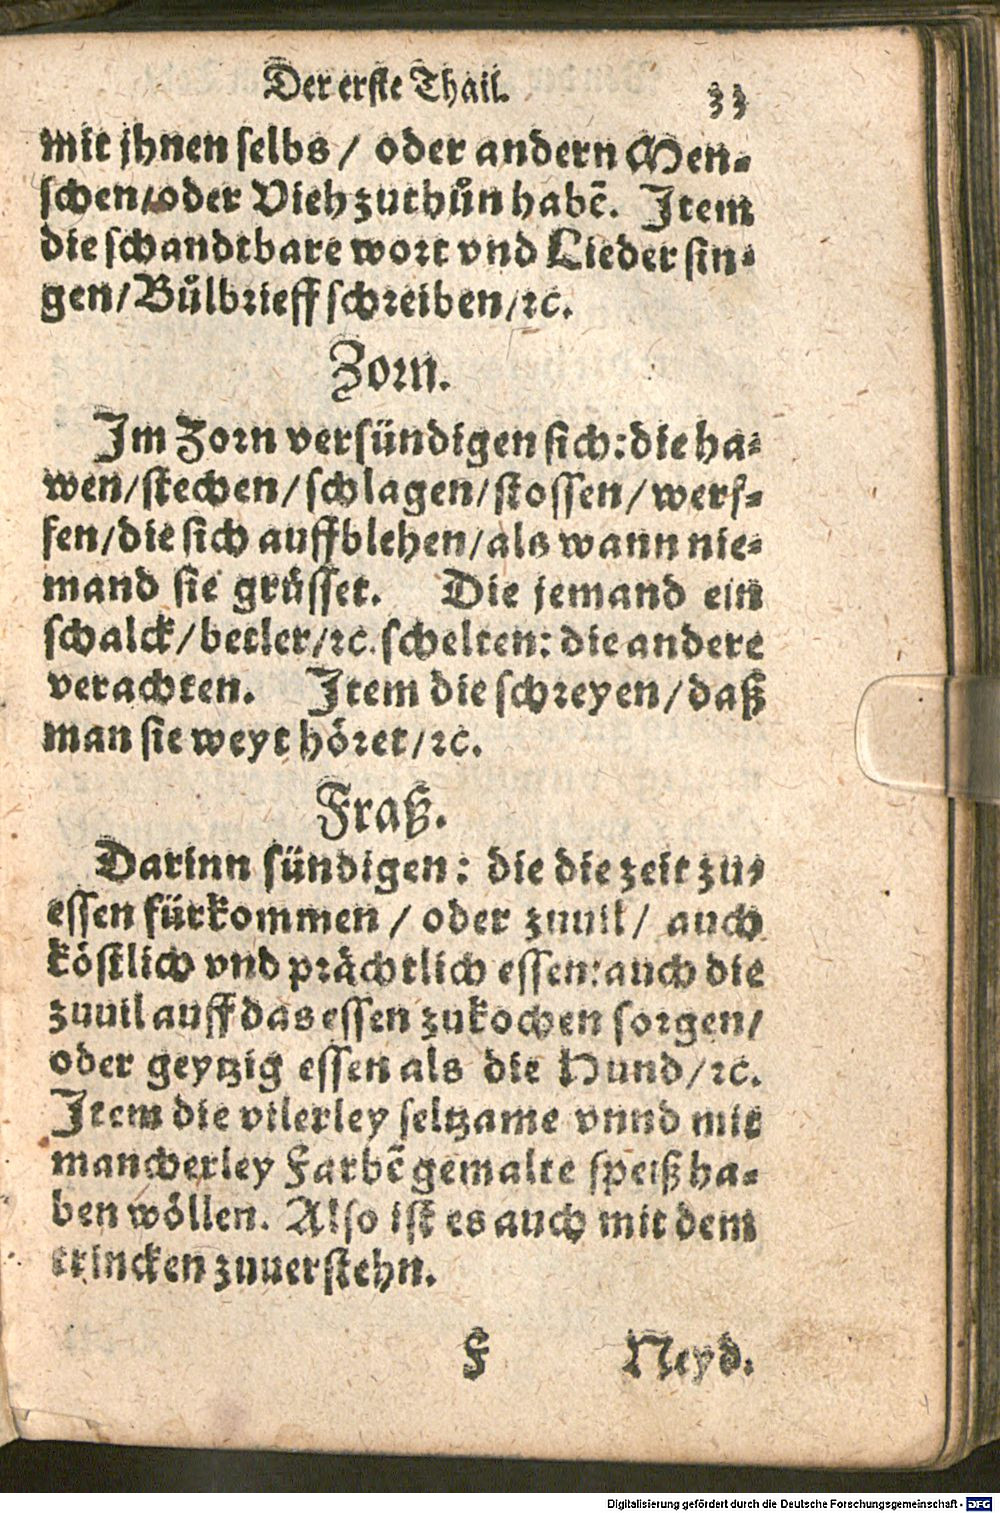 Der erste Thail. 33
mit jhnen selbs / oder andern Men⸗
schen / oder Vieh zuthůn habē. Jtem
die schandtbare wort vnd Lieder sin⸗
gen / Bůlbrieff schreiben / ꝛc.
Zorn.
Jm Zorn versündigen sich: die ha⸗
wen / stechen / schlagen / stossen / werf⸗
fen / die sich auffblehen / als wann nie⸗
mand sie grüsset. Die jemand ein
schalck / betler / ꝛc. schelten: die andere
verachten. Jtem die schreyen / daß
man sie weyt höret / ꝛc.
Fraß.
Darinn sündigen: die die zeit zu⸗
essen fürkommen / oder zuuil / auch
köstlich vnd prächtlich essen: auch die
zuuil auff das essen zukochen sorgen /
oder geytzig essen als die Hund / ꝛc.
Jtem die vilerley seltzame vnnd mit
mancherley Farbē gemalte speiß ha⸗
ben wöllen. Also ist es auch mit dem
trincken zuuerstehn.
F Neyd.
Digitalisierung gefördert durch die Deutsche Forschungsgemeinschaft - DFG